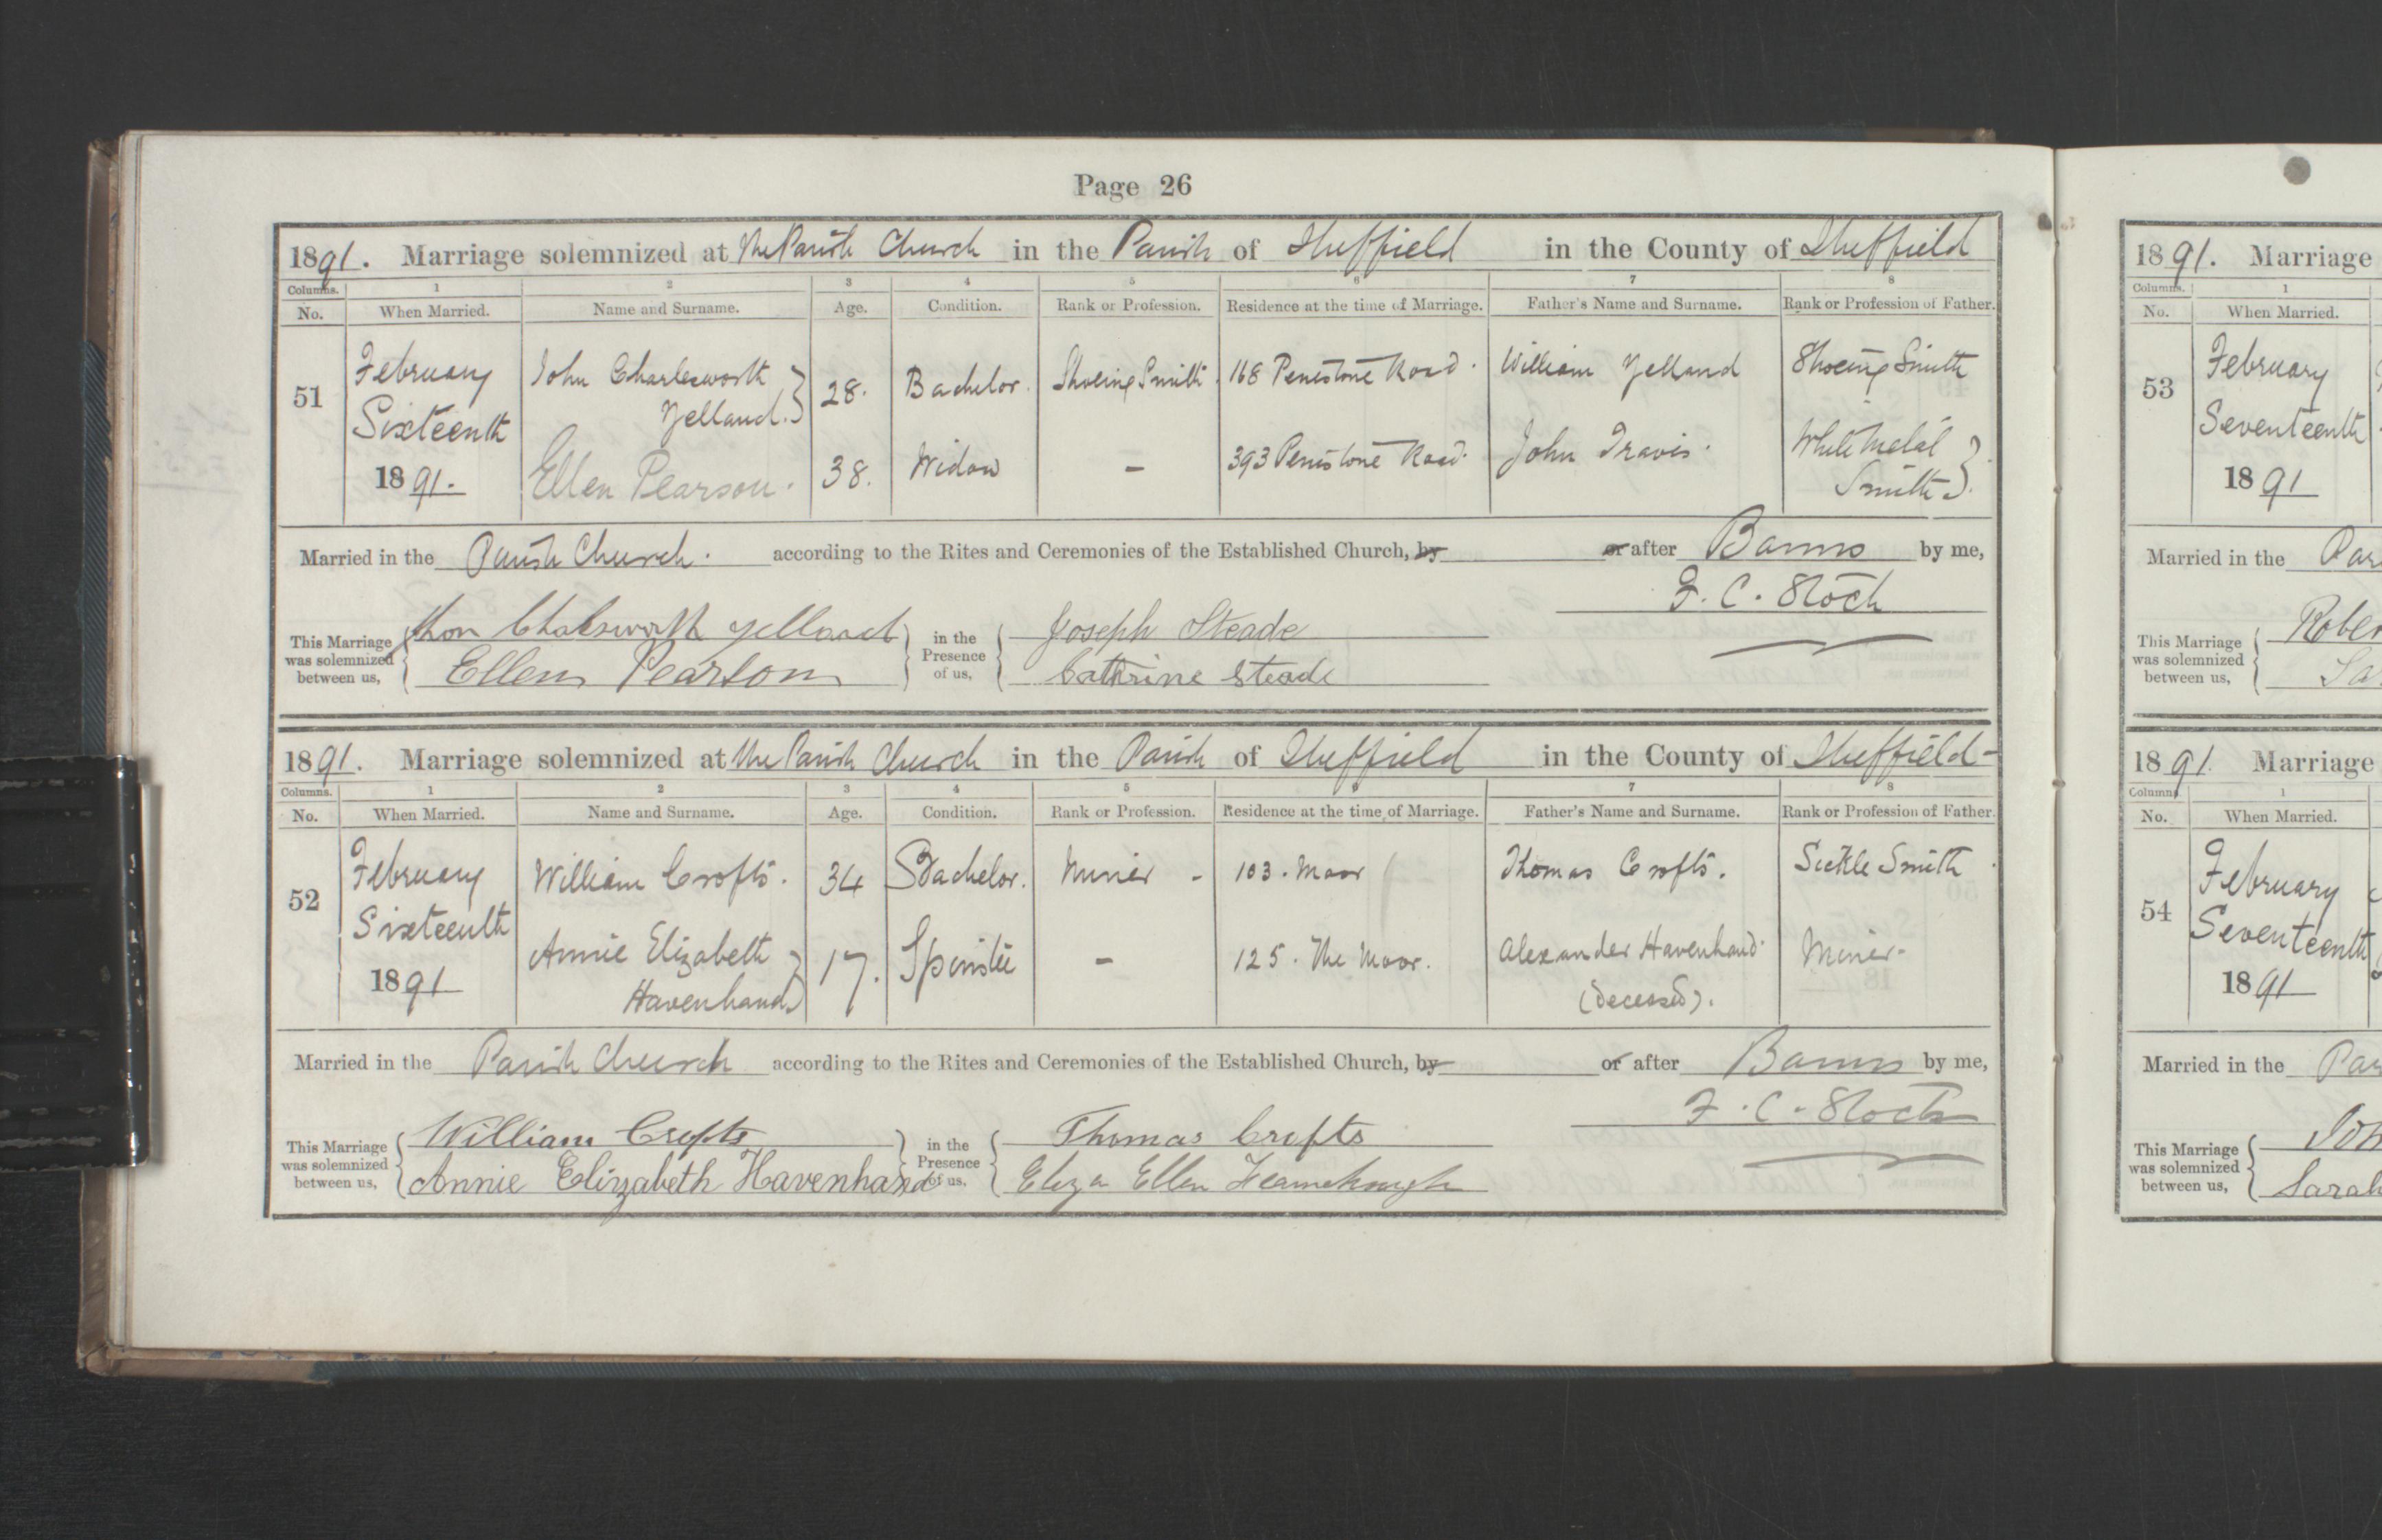 Page 26
1891. Marriage solemnized at The Parish Church in the Parish of Sheffield in the County of Sheffield
Columns. 1 2 3 4 5 6 7 8
No. When Married. Name and Surname. Age. Condition. Rank or Profession. Residence at the time of Marriage. Father's Name and Surname. Rank or Profession of Father.
51 February John Charlesworth 28. Bachelor. Shoeing Smith. 168 Penistone Road. William Yelland Shoeing Smith
Sixteenth Yelland.
1891. Ellen Pearson. 38. Widow – 393 Penistone Road. John Travis. White Metal
Smith
Married in the Parish Church. according to the Rites and Ceremonies of the Established Church, by or after Banns by me,
F. C. Stock
This Marriage was solemnized between us, Jhon Yelland in the Presence of us, Joseph Steade
Ellen Pearson Cathrine Steade
1891. Marriage solemnized at The Parish Church in the Parish of Sheffield in the County of Sheffield-
Columns. 1 2 3 4 5 6 7 8
No. When Married. Name and Surname. Age. Condition. Rank or Profession. Residence at the time of Marriage. Father's Name and Surname. Rank or Profession of Father.
52 February William Crofts. 34 Bachelor. Miner - 103. Moor Thomas Crofts. Sickle Smith
Sixteenth Annie Elizabeth 17. Spinster – 125. The Moor. Alexander Havenhand. Miner-
1891 Havenhand (deceased).
Married in the Parish Church according to the Rites and Ceremonies of the Established Church, by or after Banns by me,
F. C. Stock
This Marriage was solemnized between us, William Crofts in the Presence of us, Thomas Crofts
Annie Elizabeth Havenhand Eliza Ellen
1891. Marriage
Columns. 1
No. When Married.
53 February
Seventeenth
1891
Married in the Par
This Marriage was solemnized between us, Rober
Sa
1891 Marriage
Columns. 1
No. When Married.
54 February
Seventeenth
1891
Married in the Par
This Marriage was solemnized between us, Joh
Sarah